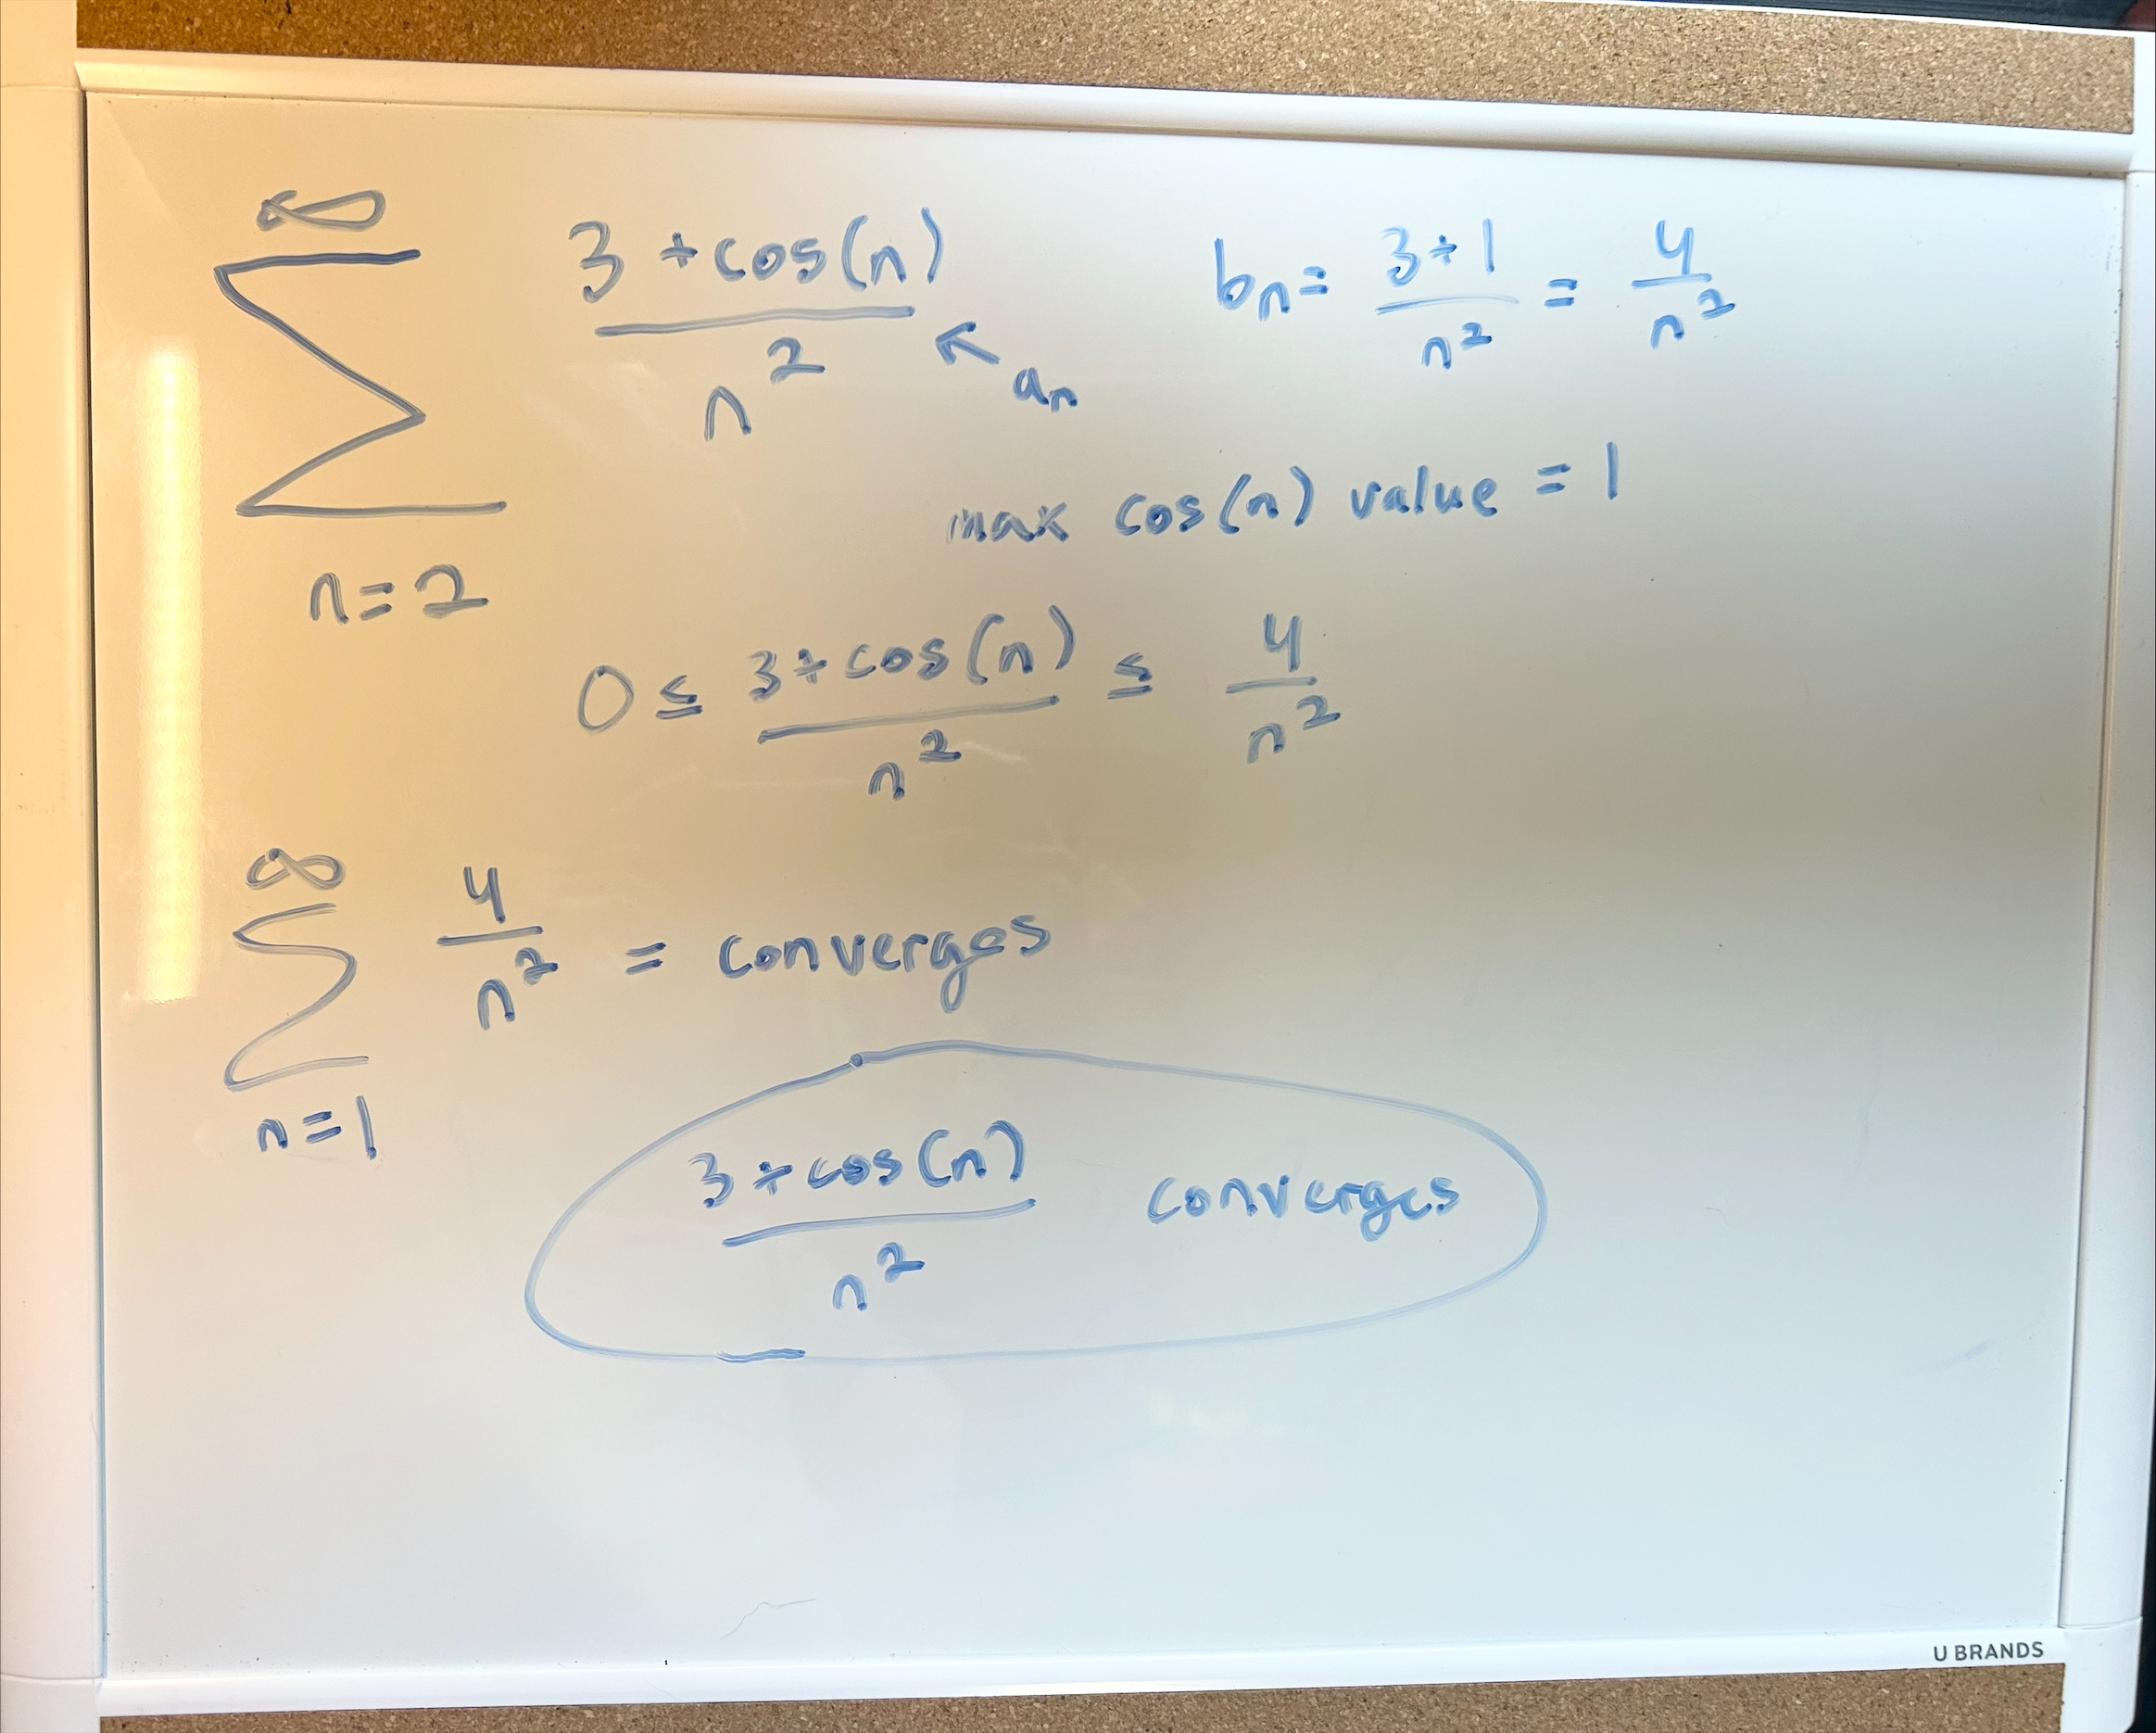 ∞
∑ (3 + cos(n))/n² ↖ aₙ bₙ = (3+1)/n² = 4/n²
n=2
max cos(n) value = 1
0 ≤ (3+cos(n))/n² ≤ 4/n²
∞
∑ 4/n² = converges
n=1
(3+cos(n))/n² converges
U BRANDS